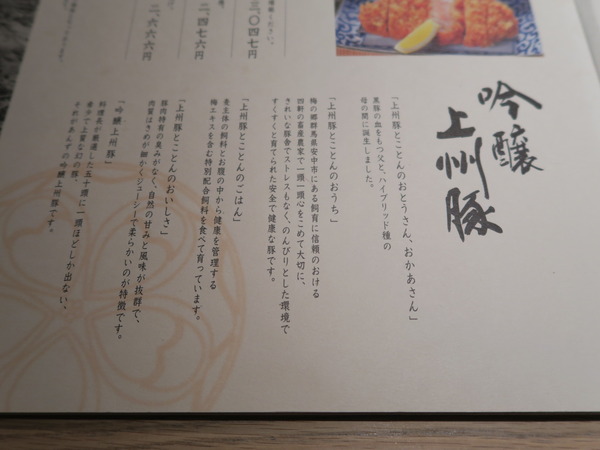 吟醸
上州豚
「上州豚とことんのおとうさん、おかあさん」
黒豚の血をもつ父と、ハイブリッド種の
母の間に誕生しました。
「上州豚とことんのおうち」
梅の郷群馬県安中市にある飼育に信頼のおける
四軒の畜産農家で一頭一頭心をこめて大切に、
きれいな豚舎でストレスもなく、のんびりとした環境で
すくすくと育てられた安全で健康な豚です。
「上州豚とことんのごはん」
麦主体の飼料とお腹の中から健康を管理する
梅エキスを含む特別配合飼料を食べて育っています。
「上州豚とことんのおいしさ」
豚肉特有の臭みがなく、自然の甘みと風味が抜群で、
肉質はきめが細かくジューシーで柔らかいのが特徴です。
「吟醸上州豚」
料理長が厳選した五十頭に一頭ほどしか出ない、
希少で上質な幻の豚。
それがあんずの吟醸上州豚です。
ください。
三、〇四七円
二、四七六円
二、六六六円